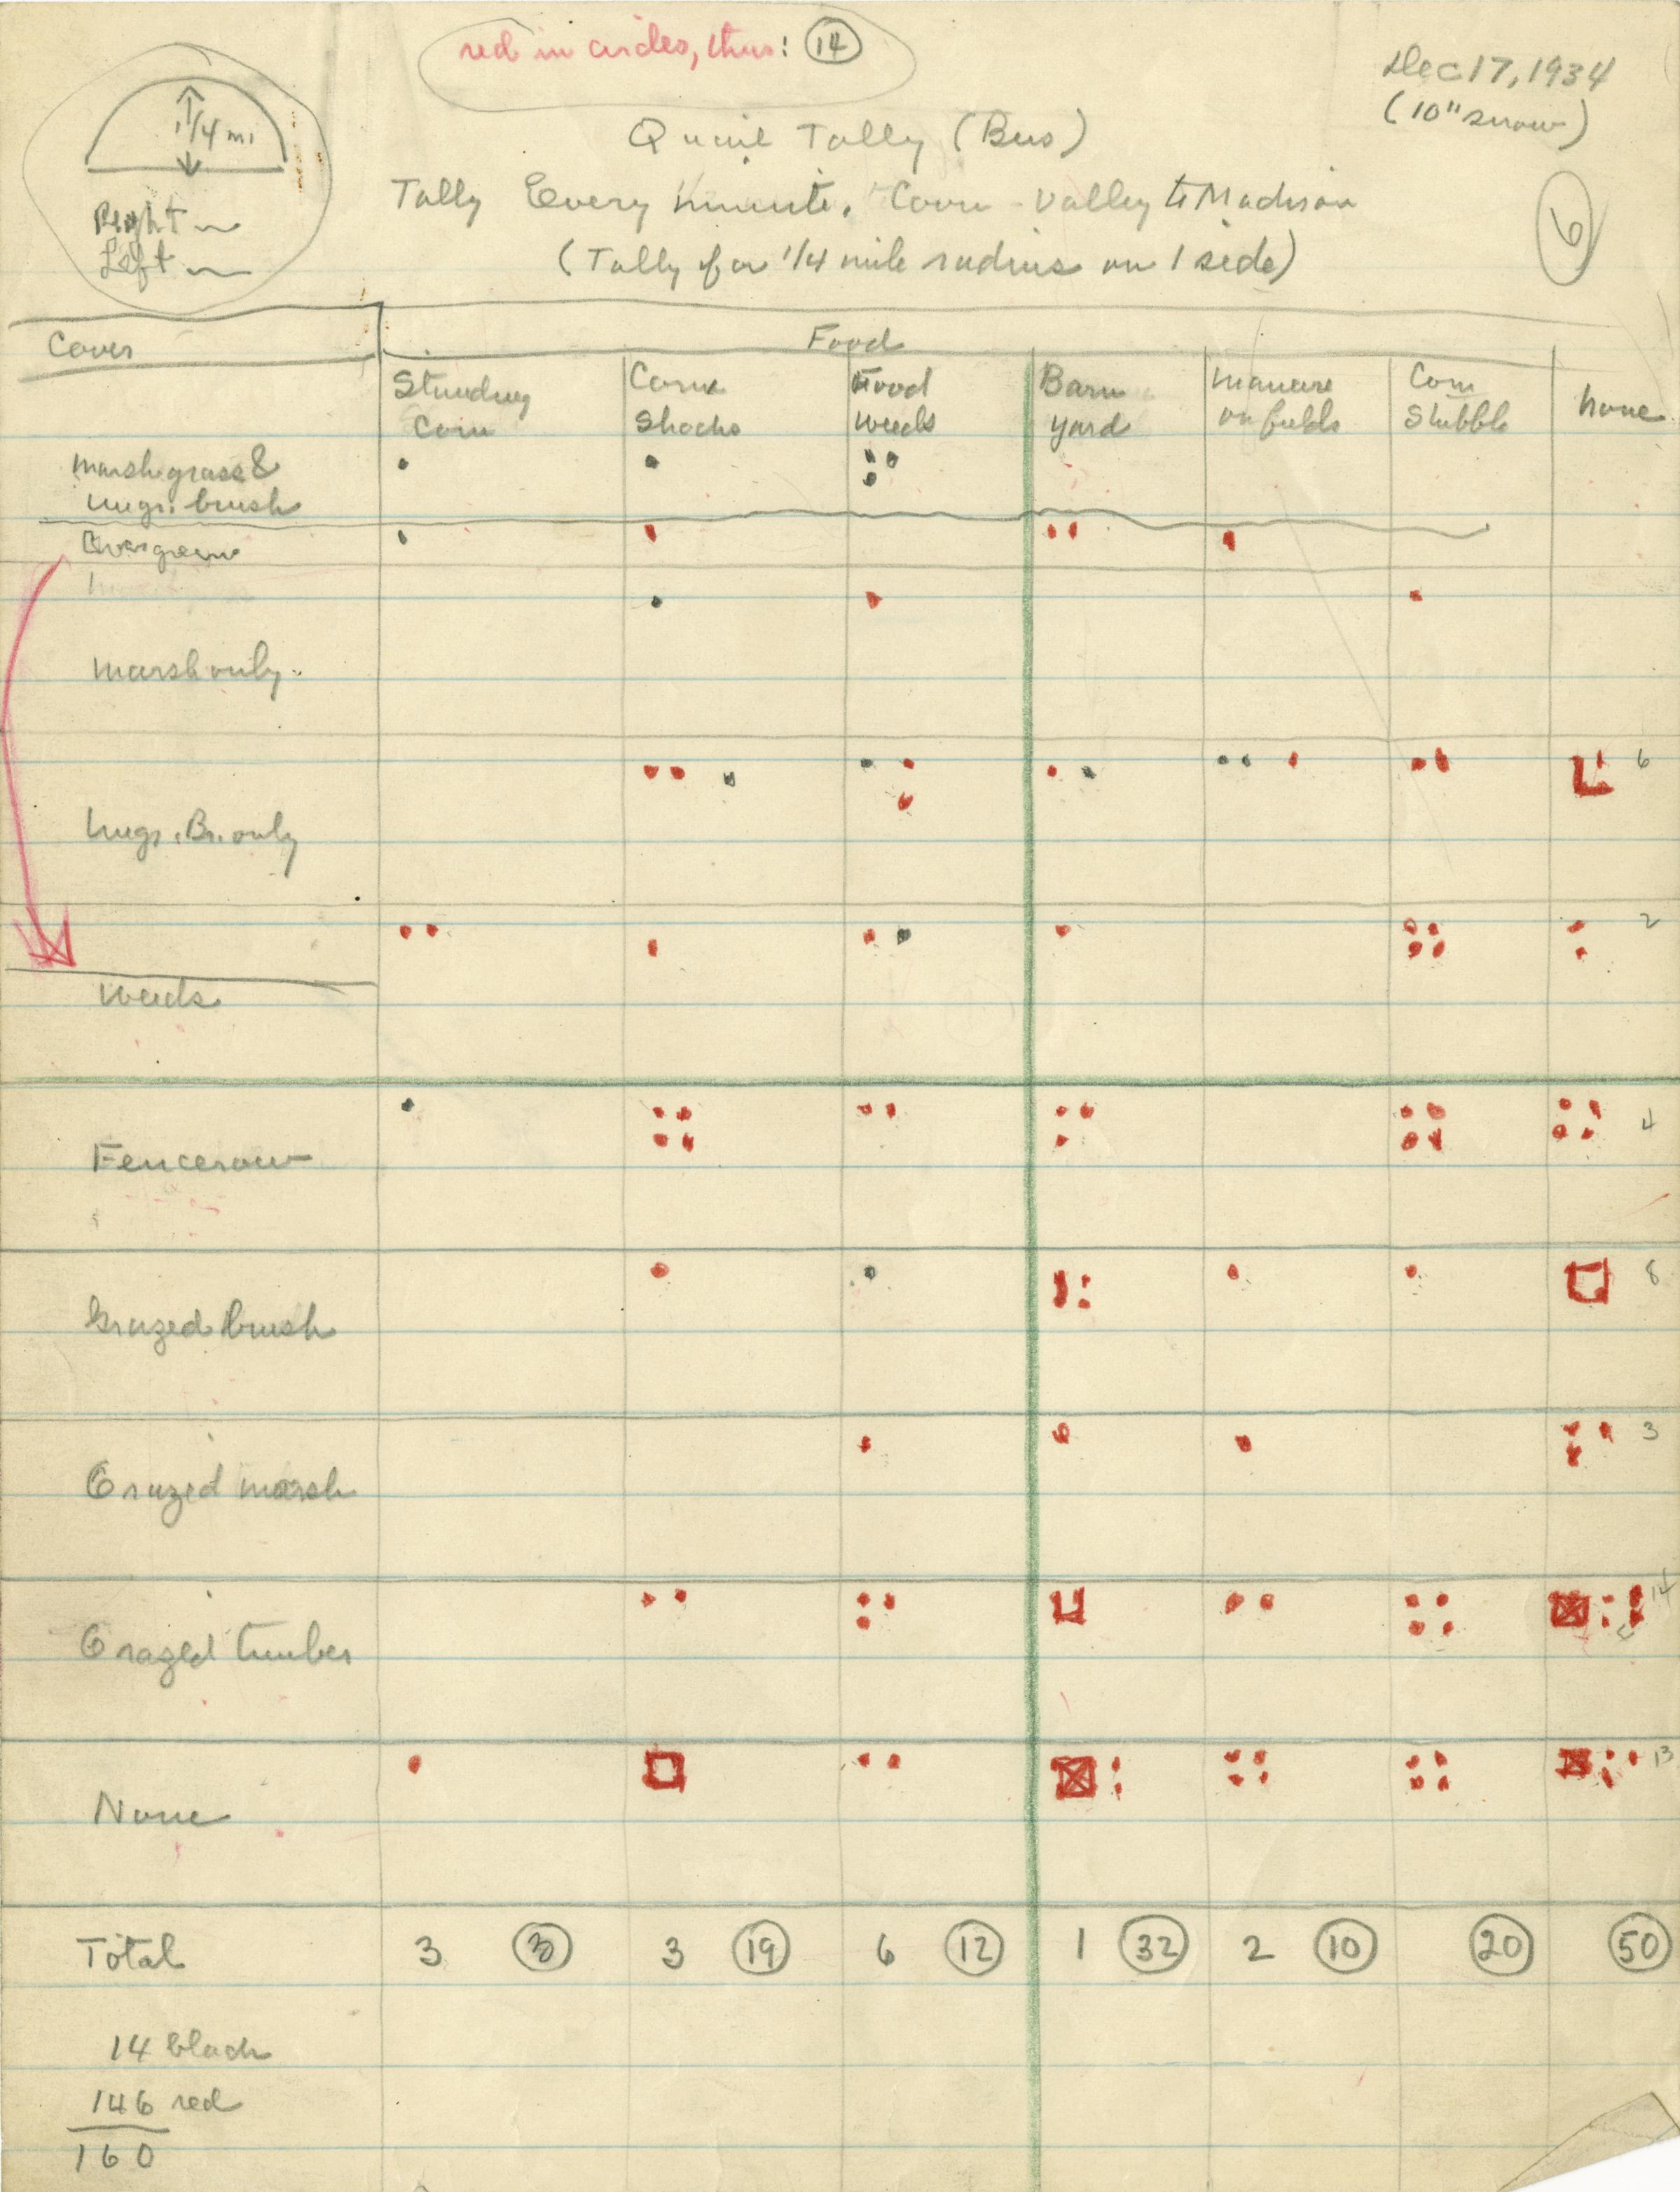 red in circles, thus: 14
Dec 17, 1934
(10" snow)
1/4 mi
Right
Left
Quail Tally (Bus)
Tally Every minute, Coon Valley to Madison
(Tally for 1/4 mile radius on 1 side)
6
Cover
Food
Standing Corn
Corn Shocks
Food Weeds
Barn yard
Manure on fields
Corn Stubble
None
Marsh grass &
ungr. brush
Evergreen
Marsh only
Ungr. Br. only
6
2
Weeds
Fencerow
4
Grazed brush
8
Grazed marsh
3
Grazed timber
14
None
13
Total 3 3 3 19 6 12 1 32 2 10 20 50
14 black
146 red
160